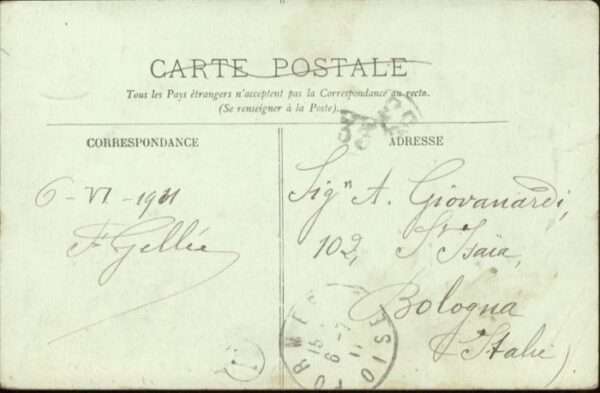 CARTE POSTALE
Tous les Pays étrangers n'acceptent pas la Correspondance au recto.
(Se renseigner à la Poste).
CORRESPONDANCE
ADRESSE
6-VI-1911
F. Gellée
Sigr A. Giovanardi,
102, St Isaïa,
Bologna
(Italie)